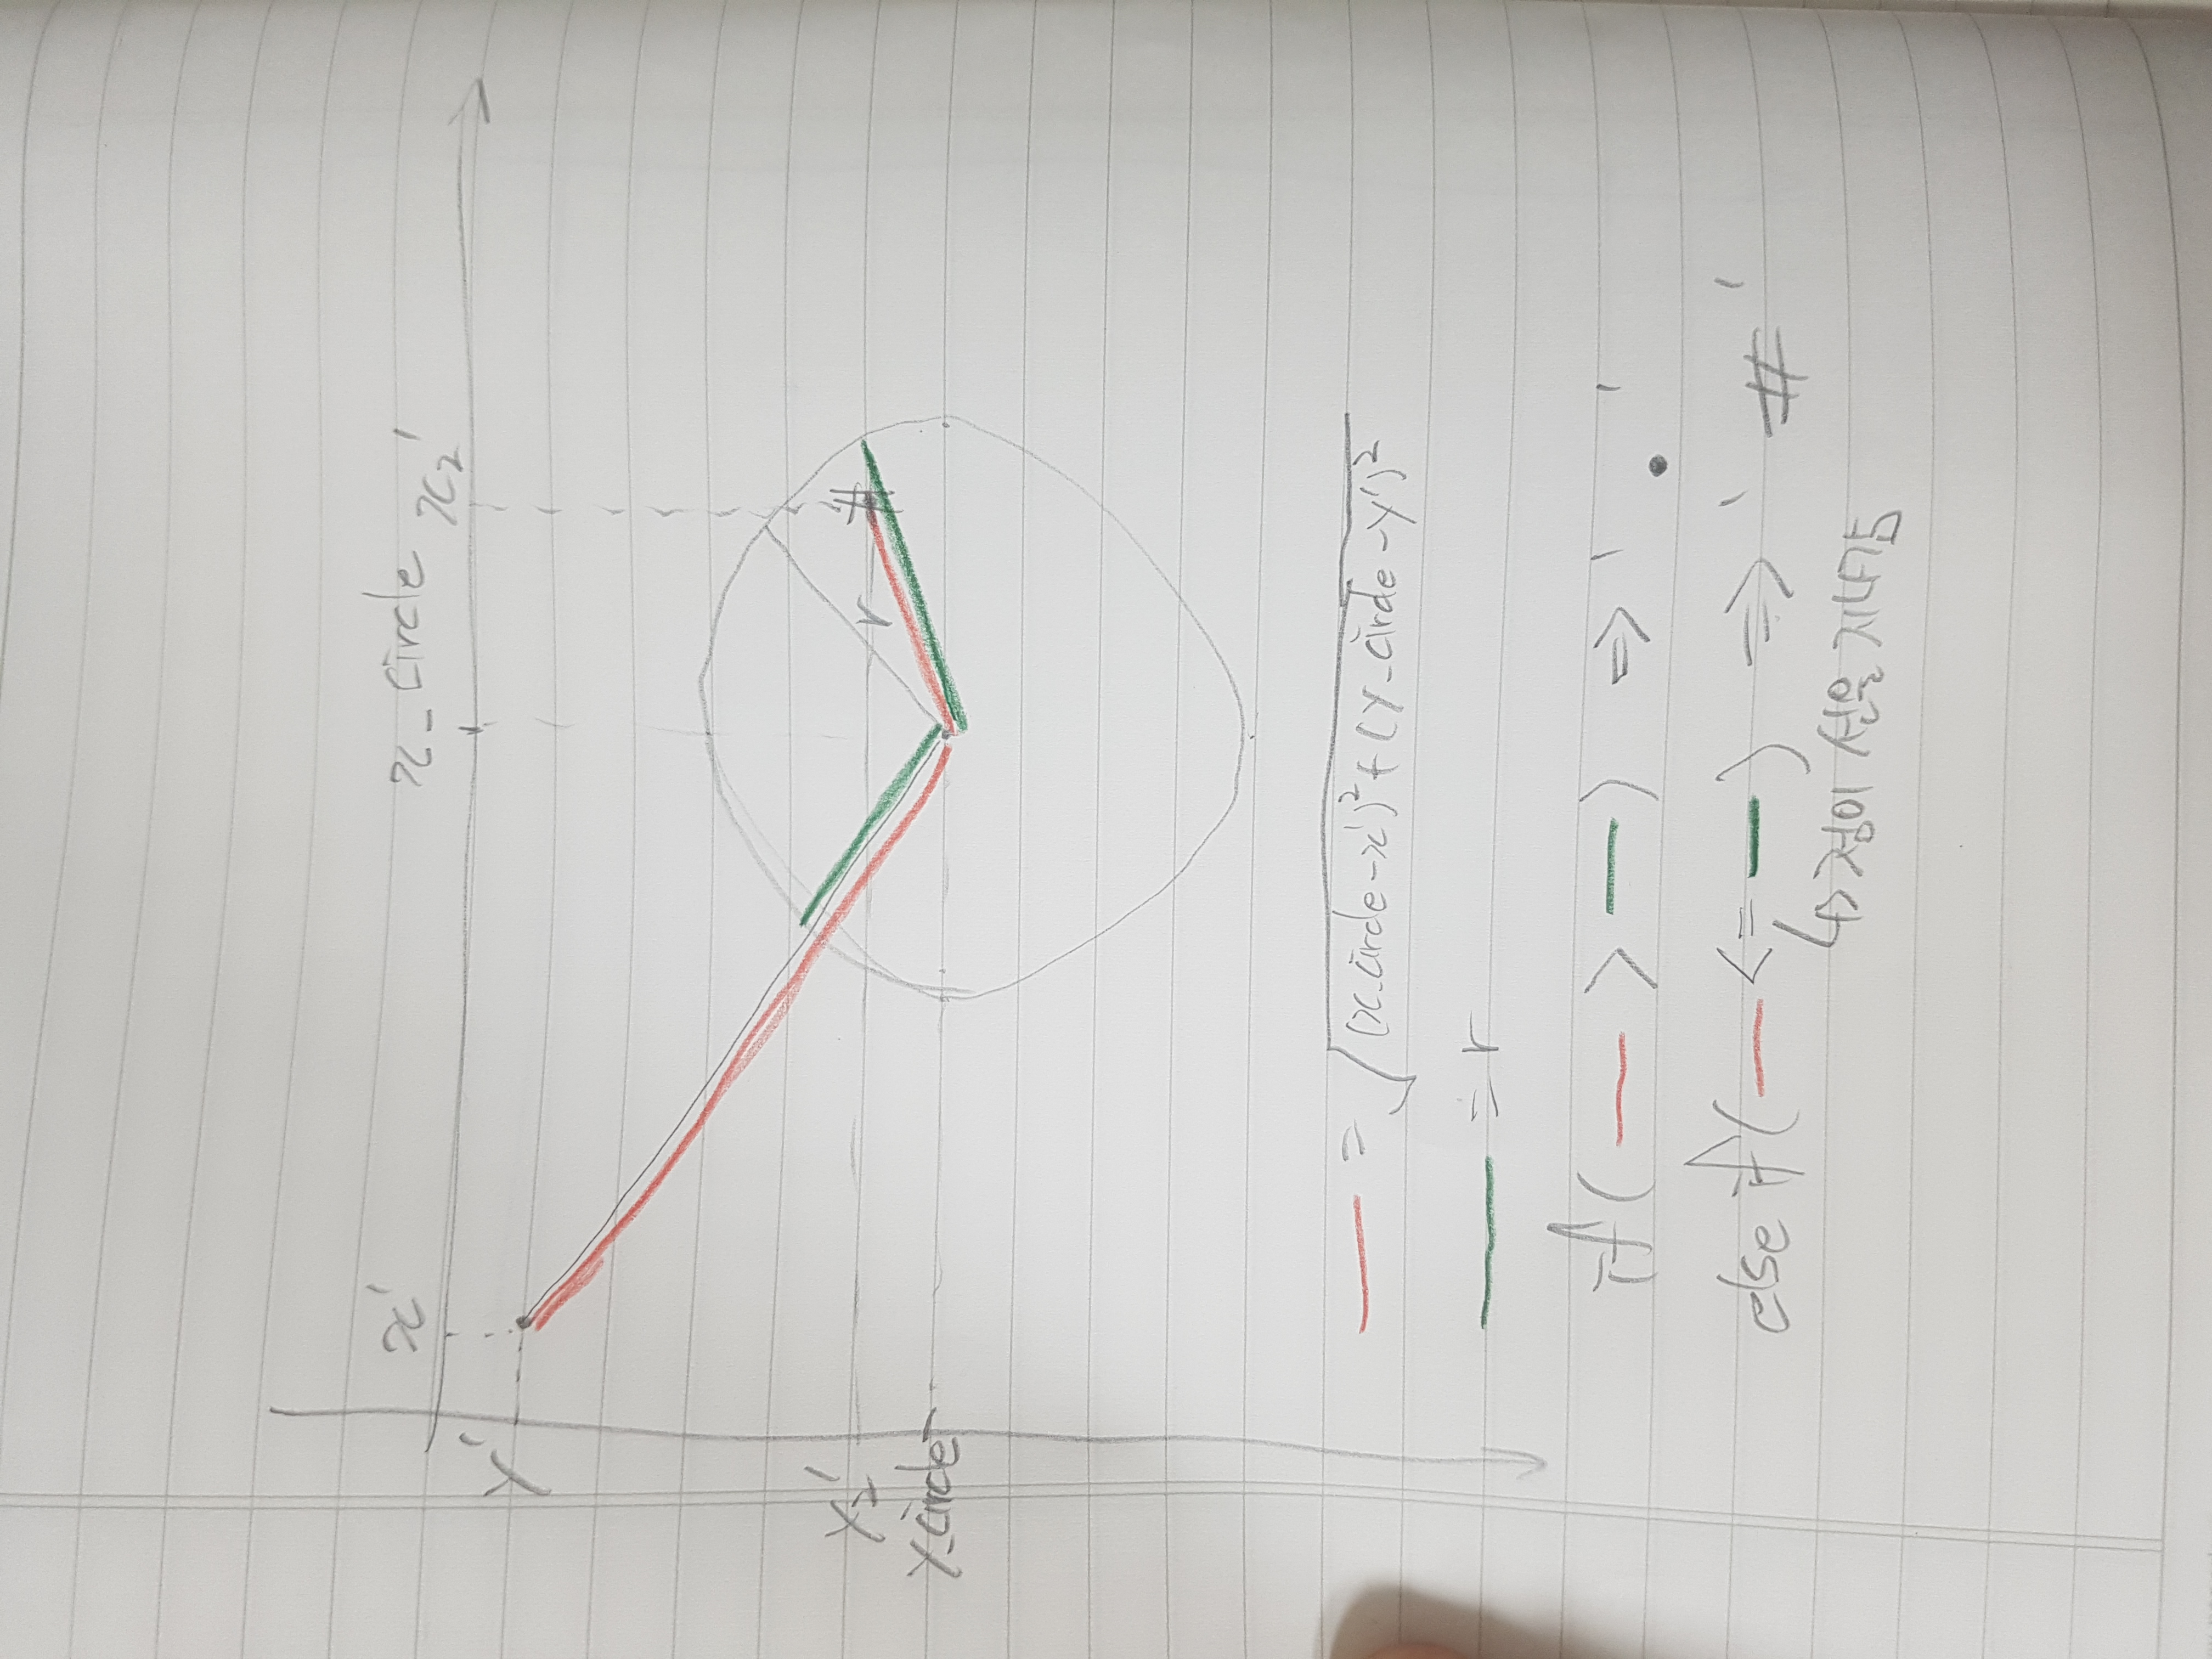 x'
x_circle
x₂'
y'
y₂'
r
y_circle
= √((x_circle-x')²+(y_circle-y')²)
= r
if( > ) => ' . '
else if( <= ) => ' # '
↳> 점이 선을 지나감
#